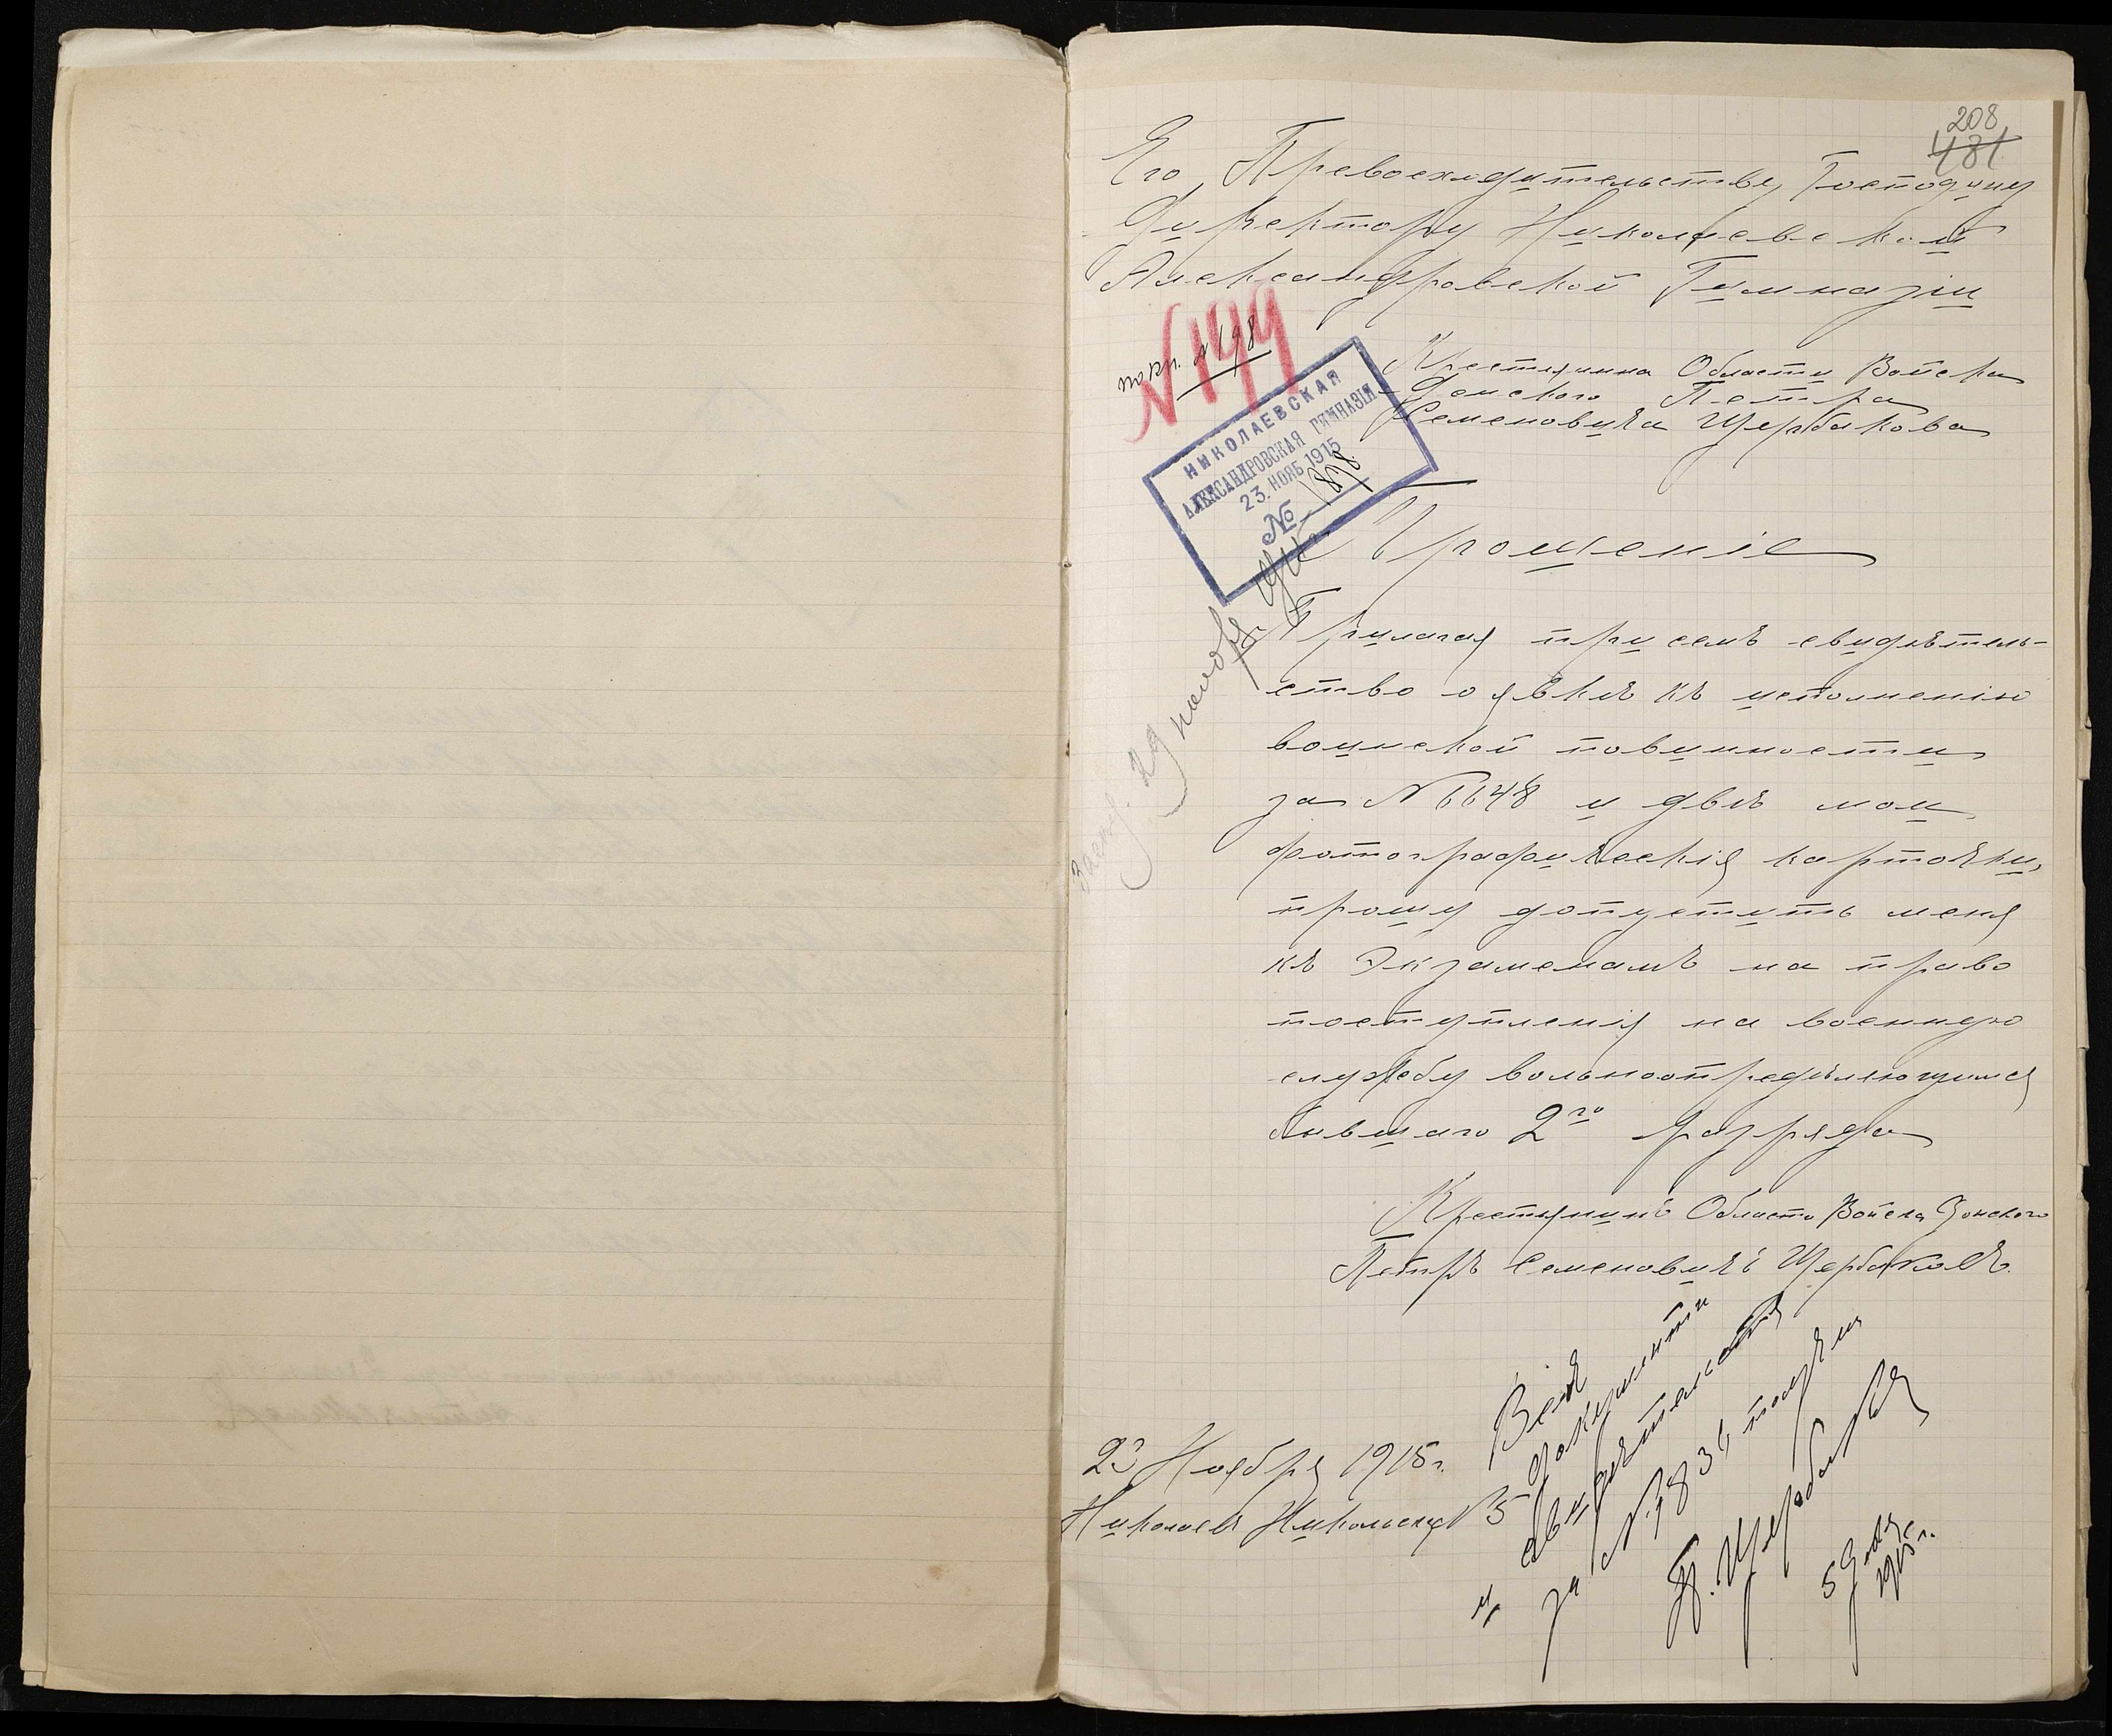 208
481
Его Превосходительству Господину
Директору Николаевской
Александровской Гимназіи
№ 199
№ 198
Крестьянина Области Войска
Донского Петра
Семеновича Щербакова
НИКОЛАЕВСКАЯ
АЛЕКСАНДРОВСКАЯ ГИМНАЗІЯ
23. НОЯБ 1915
№ 1898
Прошеніе
29 ноября
Прилагая при семъ свидѣтель-
ство о явкѣ къ исполненію
воинской повинности
за № 6648 и двѣ мои
фотографическія карточки,
прошу допустить меня
къ Экзаменамъ на право
поступленія на военную
службу вольноопредѣляющимся
бывшаго 2го разряда
Крестьянинъ Области Войска Донского
Петръ Семеновичъ Щербаковъ.
23 Ноября 1915 г.
Николаевъ Никольская № 5
Всѣ
документы
и свидѣтельство
за № 1834 получилъ
П. Щербаковъ
5
1915 г.